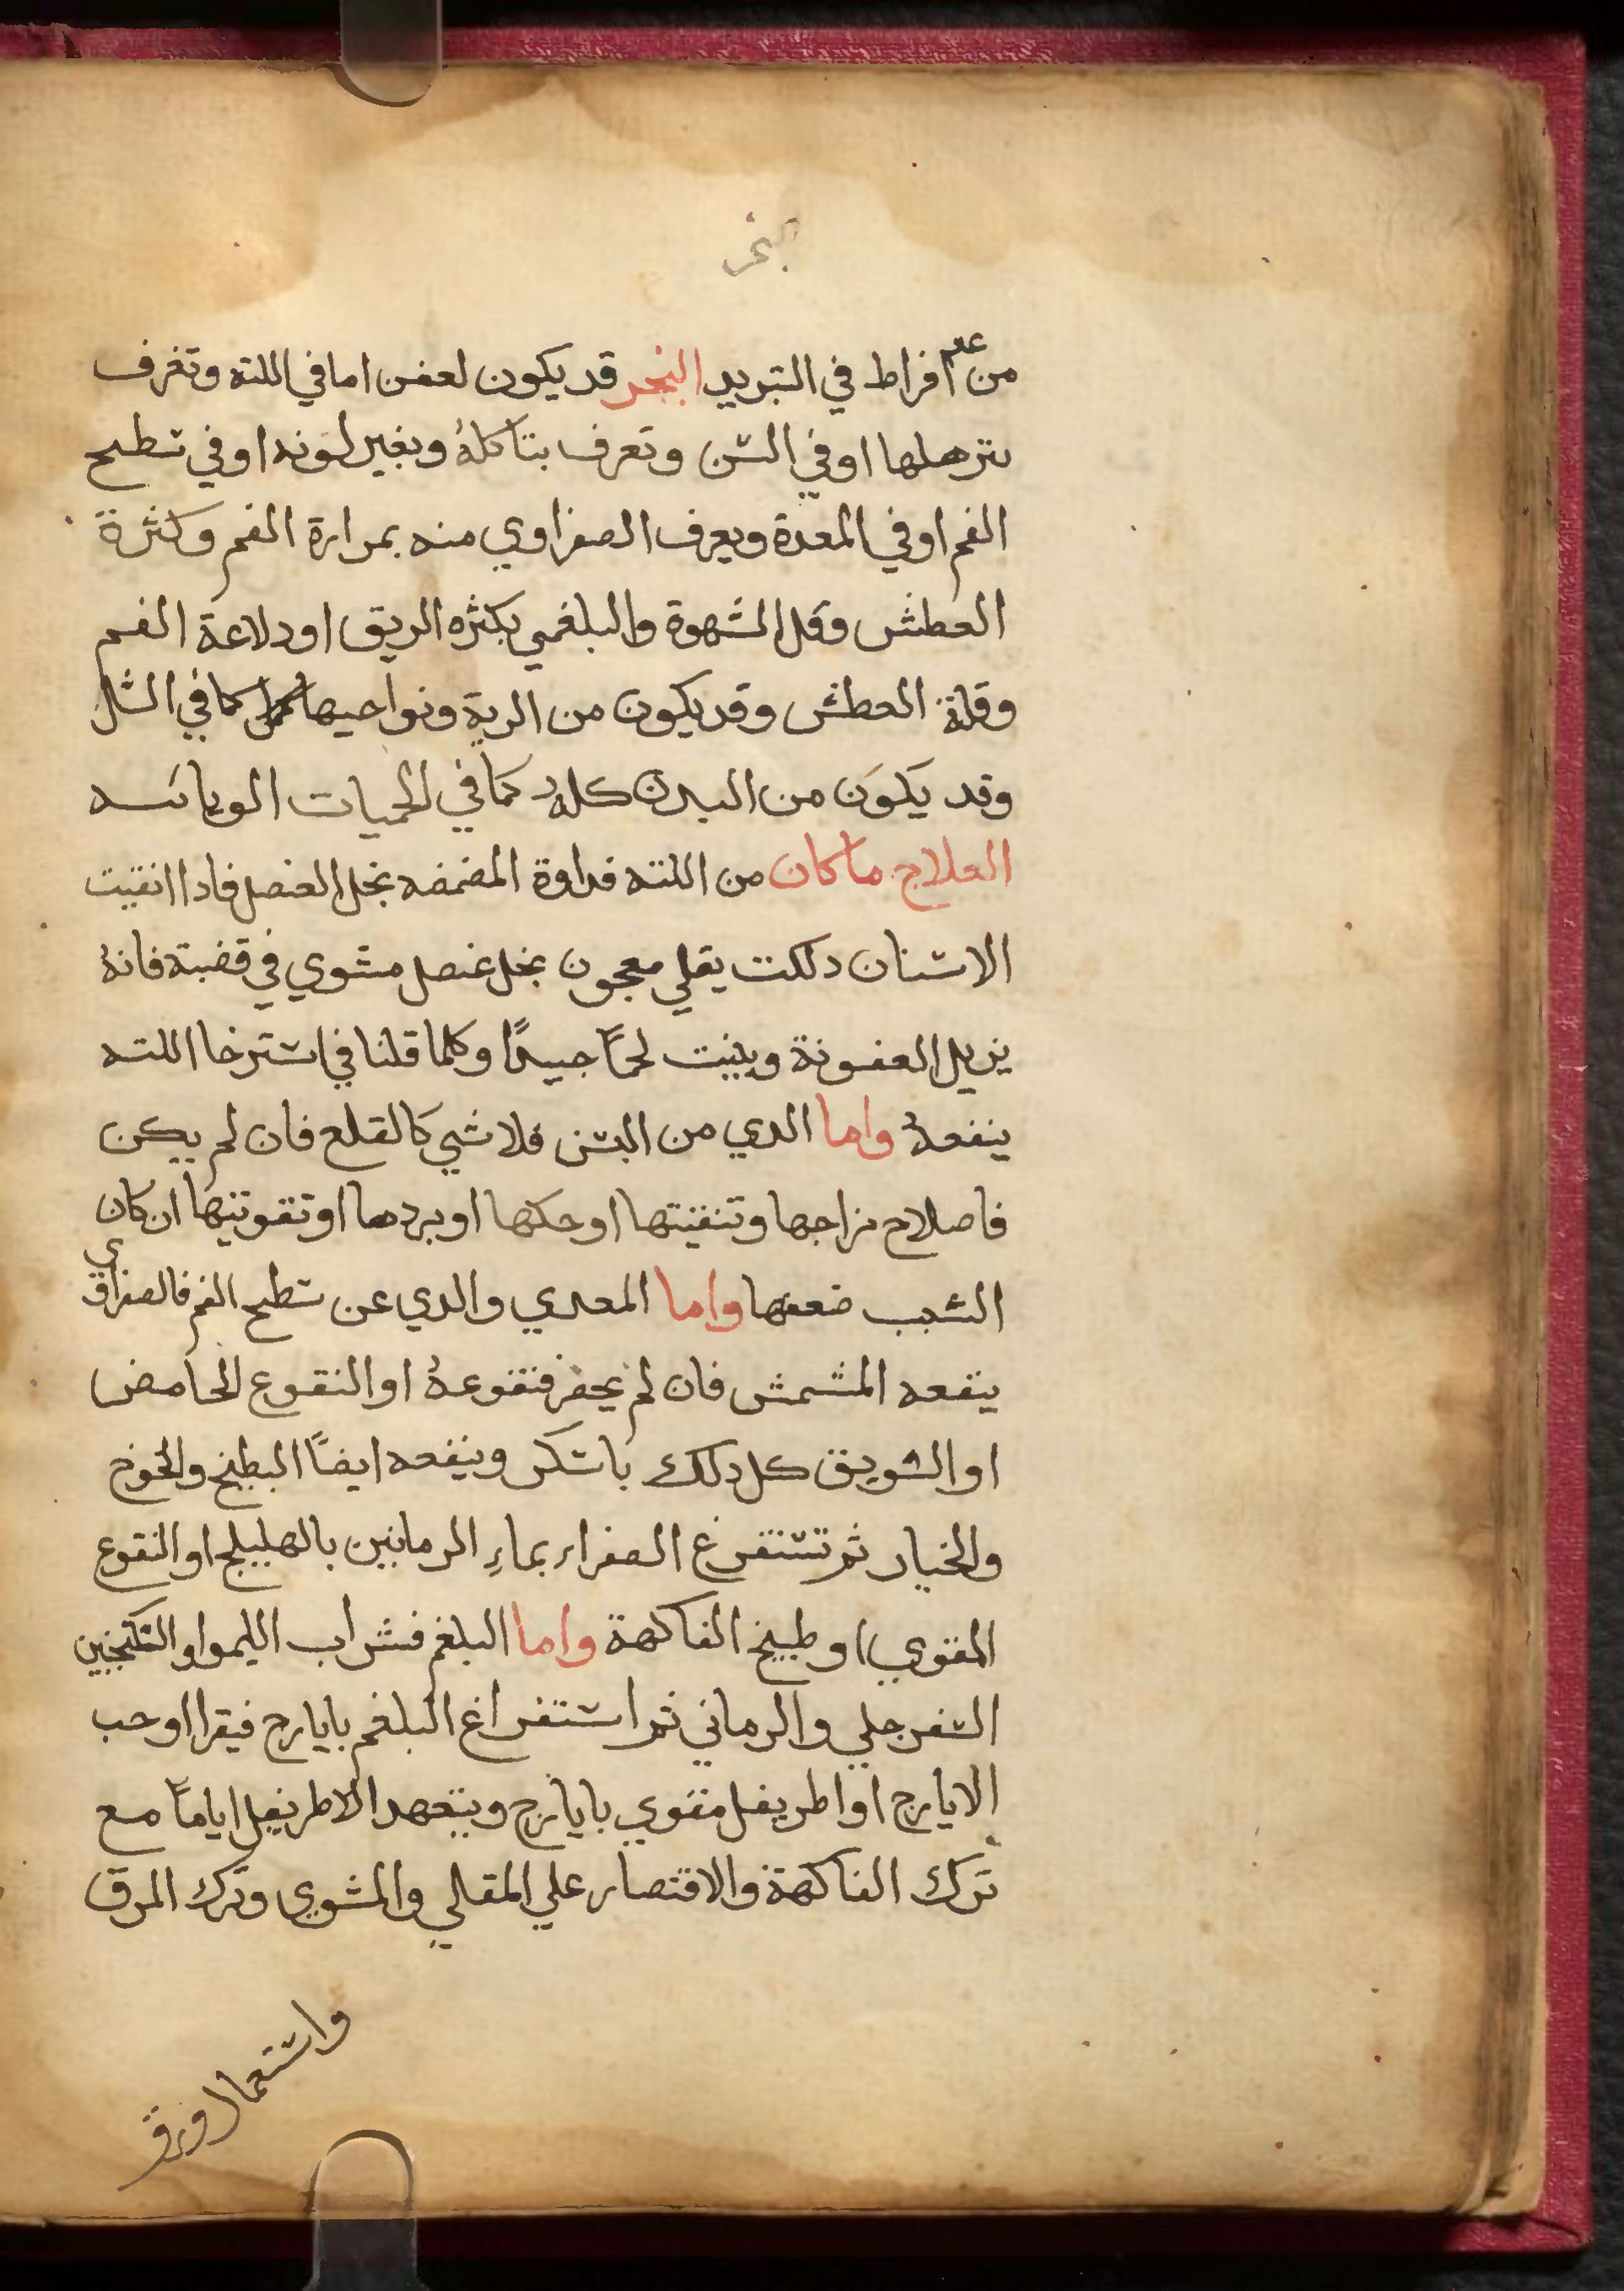 بخر
من عدم افراط في التبريد البخر قد يكون لعفن اما في اللثه وتغرف
بترهلها او في السن وتعرف بتاكله وبغير لونه او في سطح
الفم او في المعدة ويعرف الصفراوي منه بمرارة الفم وكثرة
العطش وقله الشهوة والبلغمي بكثره الريق او دلاعة الفم
وقلة العطش وقد يكون من الرية ونواحيها كما في السل
وقد يكون من البدن كله كما في الحميات الوبائيه
العلاج ما كان من اللثه فداوة المضمضه بخل العنصل فادا انقيت
الاسنان دلكت بقلي معجون بخل عنصل مشوي في قضبة فانهُ
يزيل العفونة وينبت لحماً جيداً وكلما قلنا في استرخا اللثه
ينفعهُ واما الدي من السن فلا شي كالقلع فان لم يكن
فاصلاح مزاجها وتنقيتها او حكها او بردها او تقويتها ان كان
السبب ضعفها واما المعدي والدي عن سطح الفم فالصفراوي
ينفعه المشمش فان لم يحضر فنقوعهُ او النقوع الحامض
او السويق كل دلك باسكر وينفعه ايضاً البطيخ والخوخ
والخيار ثم تستفرغ الصفراء بماءِ الرمانين بالهليلج او النقوع
المقوي او طبيخ الفاكهة واما البلغم فشراب الليمو او السكنجبين
السفرجلي والرماني ثم استفراغ البلغم بايارج فيقرا او حب
الايارج او اطريفل مقوي بايارج ويتعهد الاطريفل اياماً مع
ترك الفاكهة والاقتصار علي المقالي والمشوي وترك المرق
واستعمال ورق